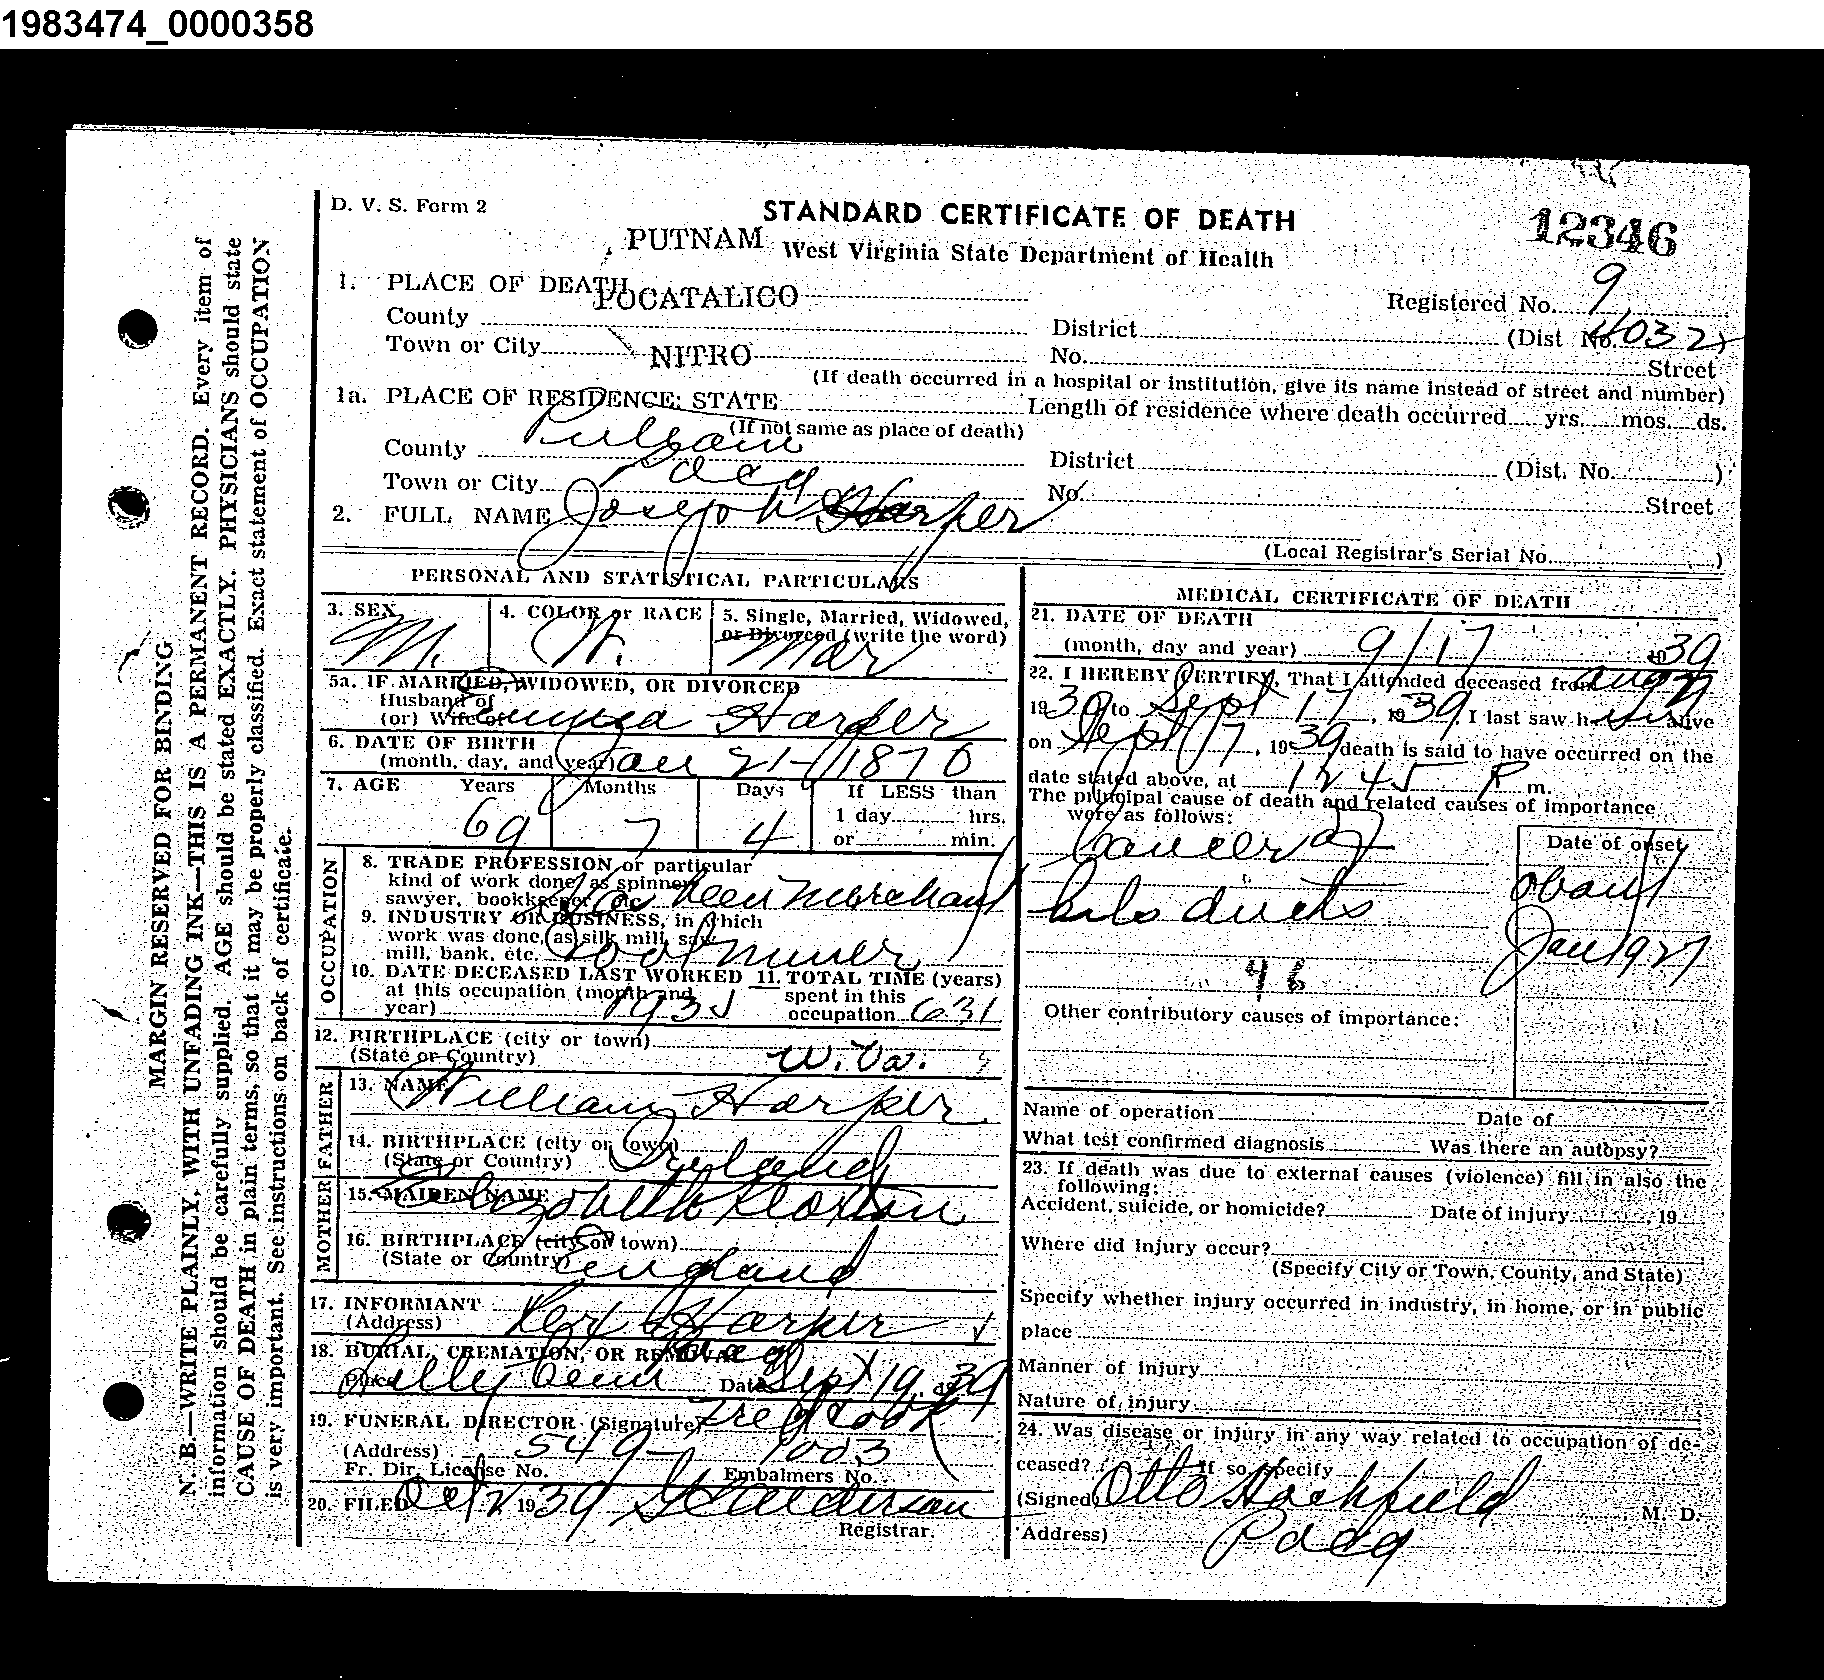 1983474_0000358
D. V. S. Form 2
STANDARD CERTIFICATE OF DEATH
12346
PUTNAM
West Virginia State Department of Health
1. PLACE OF DEATH
POCATALICO
Registered No. 9
County
District
(Dist No. 4032)
Town or City NITRO
No.
Street
(If death occurred in a hospital or institution, give its name instead of street and number)
1a. PLACE OF RESIDENCE: STATE
Length of residence where death occurred yrs. mos. ds.
(If not same as place of death)
County Putnam
District
(Dist. No. )
Town or City Poca
No.
Street
2. FULL NAME Joseph Harper
(Local Registrar's Serial No. )
PERSONAL AND STATISTICAL PARTICULARS
3. SEX M.
4. COLOR or RACE W.
5. Single, Married, Widowed, or Divorced (write the word) Mar
5a. IF MARRIED, WIDOWED, OR DIVORCED
Husband of
(or) Wife of Harper
6. DATE OF BIRTH
(month, day, and year) Jan 21 - 1870
7. AGE Years Months Days If LESS than
1 day hrs.
69 7 4 or min.
OCCUPATION
8. TRADE PROFESSION or particular
kind of work done, as spinner
sawyer, bookkeeper, etc. been merchant
9. INDUSTRY OR BUSINESS, in which
work was done, as silk mill, saw
mill, bank, etc. Coal miner
10. DATE DECEASED LAST WORKED
at this occupation (month and
year)
11. TOTAL TIME (years)
spent in this
occupation
12. BIRTHPLACE (city or town)
(State or Country) W. Va.
FATHER
13. NAME William Harper
14. BIRTHPLACE (city or town)
(State or Country) Ireland
MOTHER
15. MAIDEN NAME Elizabeth
16. BIRTHPLACE (city or town)
(State or Country) England
17. INFORMANT Harper
(Address) Poca
18. BURIAL, CREMATION, OR REMOVAL
Place Date Sept 19, 1939
19. FUNERAL DIRECTOR (Signature) Fred Cook
(Address) 549 - 1003
Fr. Dir. License No. Embalmers No.
20. FILED Oct 2 1939 Anderson
Registrar.
MEDICAL CERTIFICATE OF DEATH
21. DATE OF DEATH
(month, day and year) 9/17 1939
22. I HEREBY CERTIFY, That I attended deceased from Aug
1939 to Sept 17, 1939, I last saw him alive
on Sept 17, 1939 death is said to have occurred on the
date stated above, at 12 45 P m.
The principal cause of death and related causes of importance
were as follows:
Date of onset
Cancer of
bile ducts
about
Jan 1927
46
Other contributory causes of importance:
Name of operation Date of
What test confirmed diagnosis Was there an autopsy?
23. If death was due to external causes (violence) fill in also the
following:
Accident, suicide, or homicide? Date of injury 19
Where did injury occur?
(Specify City or Town, County, and State)
Specify whether injury occurred in industry, in home, or in public
place
Manner of injury
Nature of injury
24. Was disease or injury in any way related to occupation of de-
ceased? If so, specify
(Signed) Otto Hochfield M. D.
(Address) Poca
MARGIN RESERVED FOR BINDING
N. B.—WRITE PLAINLY, WITH UNFADING INK—THIS IS A PERMANENT RECORD. Every item of
information should be carefully supplied. AGE should be stated EXACTLY. PHYSICIANS should state
CAUSE OF DEATH in plain terms, so that it may be properly classified. Exact statement of OCCUPATION
is very important. See instructions on back of certificate.